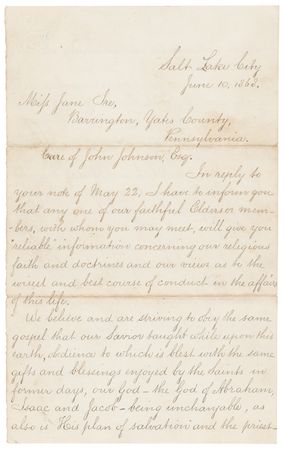 Salt Lake City
June 10, 1868.
Miss Jane
Barrington, Yates County,
Pennsylvania.
Care of John Johnson, Esq.
In reply to
your note of May 22, I have to inform you
that any one of our faithful Elders or mem-
bers, with whom you may meet, will give you
"reliable" information concerning our religious
faith and doctrines and our views as to the
wisest and best course of conduct in the affairs
of this life.
We believe and are striving to obey the same
gospel that our Savior taught while upon this
earth, obedience to which is blest with the same
gifts and blessings enjoyed by the Saints in
former days, our God – the God of Abraham,
Isaac and Jacob – being unchangable, as
also is His plan of salvation and the priest-